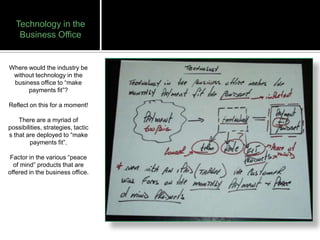 Technology in the
Business Office
Where would the industry be
without technology in the
business office to “make
payments fit”?
Reflect on this for a moment!
There are a myriad of
possibilities, strategies, tactic
s that are deployed to “make
payment fit”.
Factor in the various “peace
of mind” products that are
offered in the business office.
Technology
Technology in the business office makes the
monthly payment fit the
Payment
Technology
Payment
fit
term
Rate
FIT
Peace of
mind
Products
the customer
will focus on the monthly payment + Peace
of mind Products